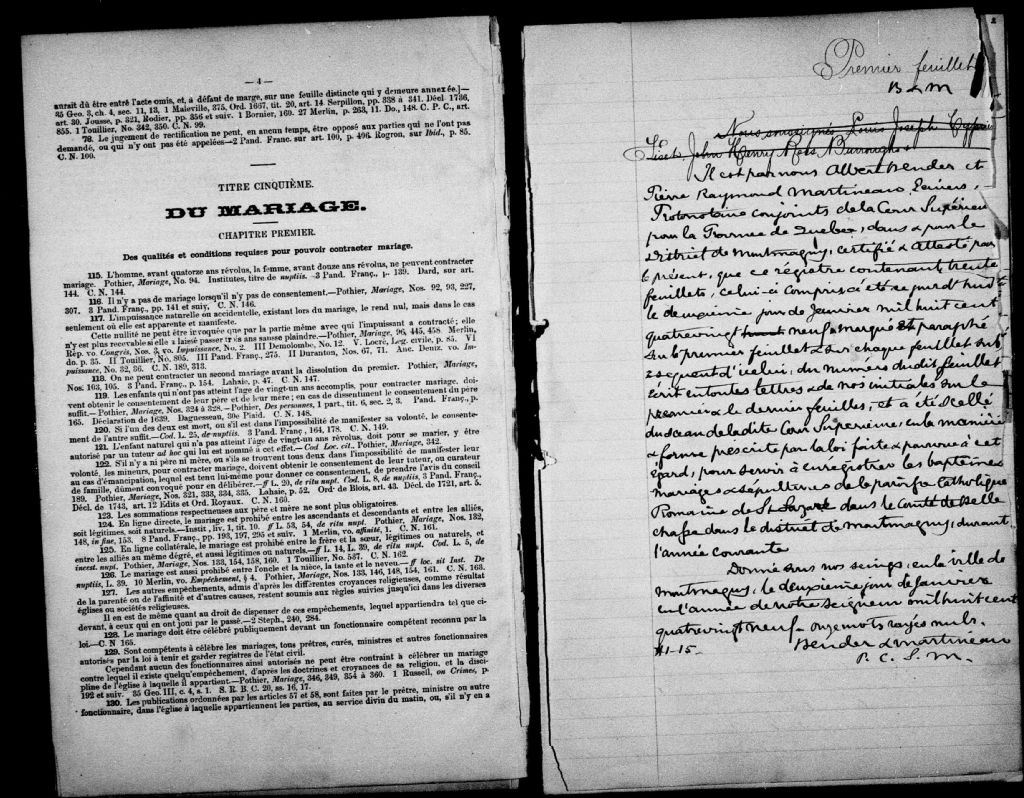 — 4 —
aurait dû être entré l'acte omis, et, à défaut de marge, sur une feuille distincte qui y demeure annexée.]—
35 Geo. 3, ch. 4, sec. 11, 13, 1 Maleville, 375, Ord. 1667, tit. 20, art. 14 Serpillon, pp. 338 à 341. Décl 1736,
art. 30. Jousse, p. 321, Rodier, pp. 356 et suiv. 1 Bornier, 160. 27 Merlin, p. 263, 11. Do., 148. C. P. C., art.
855. 1 Touillier, No. 342, 350. C. N. 99.
78. Le jugement de rectification ne peut, en aucun temps, être opposé aux parties qui ne l'ont pas
demandé, ou qui n'y ont pas été appelées—2 Pand. Franc. sur art. 100, p. 496. Rogron, sur Ibid., p. 85.
C. N. 100.
TITRE CINQUIÈME.
DU MARIAGE.
CHAPITRE PREMIER.
Des qualités et conditions requises pour pouvoir contracter mariage.
115. L'homme, avant quatorze ans révolus, la femme, avant douze ans révolus, ne peuvent contracter
mariage. Pothier, Mariage, No. 94. Institutes, titre de nuptiis. 3 Pand. Franç., p. 139. Dard, sur art.
144. C. N. 144.
116. Il n'y a pas de mariage lorsqu'il n'y pas de consentement.—Pothier, Mariage, Nos. 92, 93, 227,
307. 3 Pand. Franç., pp. 141 et suiv. C. N. 146.
117. L'impuissance naturelle ou accidentelle, existant lors du mariage, le rend nul, mais dans le cas
seulement où elle est apparente et manifeste.
Cette nullité ne peut être invoquée que par la partie même avec qui l'impuissant a contracté; elle
n'y est plus recevable si elle a laissé passer trois ans sans se plaindre.—Pothier, Mariage, Nos. 96, 445, 458. Merlin,
Rép. vo. Congrès, Nos. 3, vo. Impuissance, No. 2. III Demolombe, No. 12. V. Locré, Leg. civile, p. 85. VI
do. p. 35. II Touillier, No. 805. III Pand. Franç., 275. II Duranton, Nos. 67, 71. Anc. Deniz. vo. Im-
puissance, No. 32, 36. C. N. 189, 313.
118. On ne peut contracter un second mariage avant la dissolution du premier. Pothier, Mariage,
Nos. 103, 105. 3 Pand. Franç., p. 154. Lahaie, p. 47. C. N. 147.
119. Les enfants qui n'ont pas atteint l'age de vingt-un ans accomplis, pour contracter mariage, doi-
vent obtenir le consentement de leur père et de leur mère; en cas de dissentiment le consentement du père
suffit.—Pothier, Mariage, Nos. 324 à 328.—Pothier, Des personnes, 1 part., tit. 6, sec. 2, 3. Pand. Franç., p.
165. Déclaration de 1639. Daguesseau, 30e Plaid. C. N. 148.
120. Si l'un des deux est mort, ou s'il est dans l'impossibilité de manifester sa volonté, le consente-
ment de l'autre suffit.—Cod. L. 25, de nuptiis. 3 Pand. Franç., 164, 178. C. N. 149.
121. L'enfant naturel qui n'a pas atteint l'âge de vingt-un ans révolus, doit pour se marier, y être
autorisé par un tuteur ad hoc qui lui est nommé à cet effet.—Cod Loc. cit., Pothier, Mariage, 342.
122. S'il n'y a ni père ni mère, ou s'ils se trouvent tous deux dans l'impossibilité de manifester leur
volonté, les mineurs, pour contracter mariage, doivent obtenir le consentement de leur tuteur, ou curateur
au cas d'émancipation, lequel est tenu lui-même pour donner ce consentement, de prendre l'avis du conseil
de famille, dûment convoqué pour en délibérer.—ff L. 20, de ritu nupt. Cod. L. 8, de nuptiis, 3 Pand. Franc.
189. Pothier, Mariage, Nos. 321, 333, 334, 335. Lahaie, p. 52. Ord. de Blois, art. 43. Décl. de 1721, art. 5.
Décl. de 1743, art. 12 Edits et Ord. Royaux. C. N. 160.
123. Les sommations respectueuses aux père et mère ne sont plus obligatoires.
124. En ligne directe, le mariage est prohibé entre les ascendants et descendants et entre les alliés,
soit légitimes, soit naturels.—Instit., liv. 1, tit. 10. ff L. 53, 54, de ritu nupt. Pothier, Mariage, Nos. 132,
148, in fine, 153. 8 Pand. Franç., pp. 193, 197, 295 et suiv. 1 Merlin, vo. affinité, 1. C. N. 161.
125. En ligne collatérale, le mariage est prohibé entre le frère et la sœur, légitimes ou naturels, et
entre les alliés au même dégré, et aussi légitimes ou naturels.—ff L. 14, L. 39, de ritu nupt. Cod. L. 5, de
incest. nupt. Pothier, Mariage, Nos. 133, 154, 158, 160. 1 Touillier, No. 537. C. N. 162.
126. Le mariage est aussi prohibé entre l'oncle et la nièce, la tante et le neveu.—ff loc. sit Inst. De
nuptiis, L. 39. 10 Merlin, vo. Empêchement, § 4. Pothier, Mariage, Nos. 133, 146, 148, 154, 161. C. N. 163.
127. Les autres empêchements, admis d'après les différentes croyances religieuses, comme résultant
de la parenté ou de l'affinité et d'autres causes, restent soumis aux règles suivies jusqu'ici dans les diverses
églises ou sociétés religieuses.
Il en est de même quant au droit de dispenser de ces empêchements, lequel appartiendra tel que ci-
devant, à ceux qui en ont joui par le passé.—2 Steph., 240, 284.
128. Le mariage doit être célébré publiquement devant un fonctionnaire compétent reconnu par la
loi.—C. N 165.
129. Sont compétents à célébrer les mariages, tous prêtres, curés, ministres et autres fonctionnaires
autorisés par la loi à tenir et garder registres de l'état civil.
Cependant aucun des fonctionnaires ainsi autorisés ne peut être contraint à célébrer un mariage
contre lequel il existe quelqu'empêchement, d'après les doctrines et croyances de sa religion, et la disci-
pline de l'église à laquelle il appartient.—Pothier, Mariage, 346, 349, 354 à 360. 1 Russell, on Crimes, p.
192 et suiv. 35 Geo. III, c. 4, s. 1. S. R. B. C. 20, ss. 16, 17.
130. Les publications ordonnées par les articles 57 et 58, sont faites par le prêtre, ministre ou autre
fonctionnaire, dans l'église à laquelle appartiennent les parties, au service divin du matin, ou, s'il n'y en a
Premier feuillet
B & M
Nous soussignés Louis Joseph Cyprien
Fiset, John Henry Ross Burroughs
Il est par nous Albert Bender et
Pierre Raymond Martineau, Ecuiers,
Protonotaire conjoints de la Cour Supérieure
pour la Province de Quebec, dans & pour le
District de Montmagny, certifié & attesté par
le présent, que ce régistre contenant trente
feuillets, celui-ci compris a été ce jourd'hui
le deuxième jour de Janvier mil huit cent
quatrevingt neuf & marqué et paraphé
sur le premier feuillet & sur chaque feuillet sub
séquent d'icelui, du numéro dudit feuillet
écrit en toutes lettres & de nos initiales sur le
premier & le dernier feuilles, et a été scellé
du sceau de la dite Cour Supérieure, en la manière
& forme prescrite par la loi faite & pourvue à cet
égard, pour servir à enregistrer les baptêmes
mariages & sépultures de la paroisse Catholique
Romaine de St Lazare dans le Comté de Belle
chasse dans le district de Montmagny, durant
l'année courante
Donné sous nos seings, en la ville de
Montmagny, le deuxième jour de Janvier
en l'année de notre Seigneur mil huit cent
quatrevingt neuf — onze mots rayés nuls.
#1-15. Bender & Martineau
P. C. S. M.